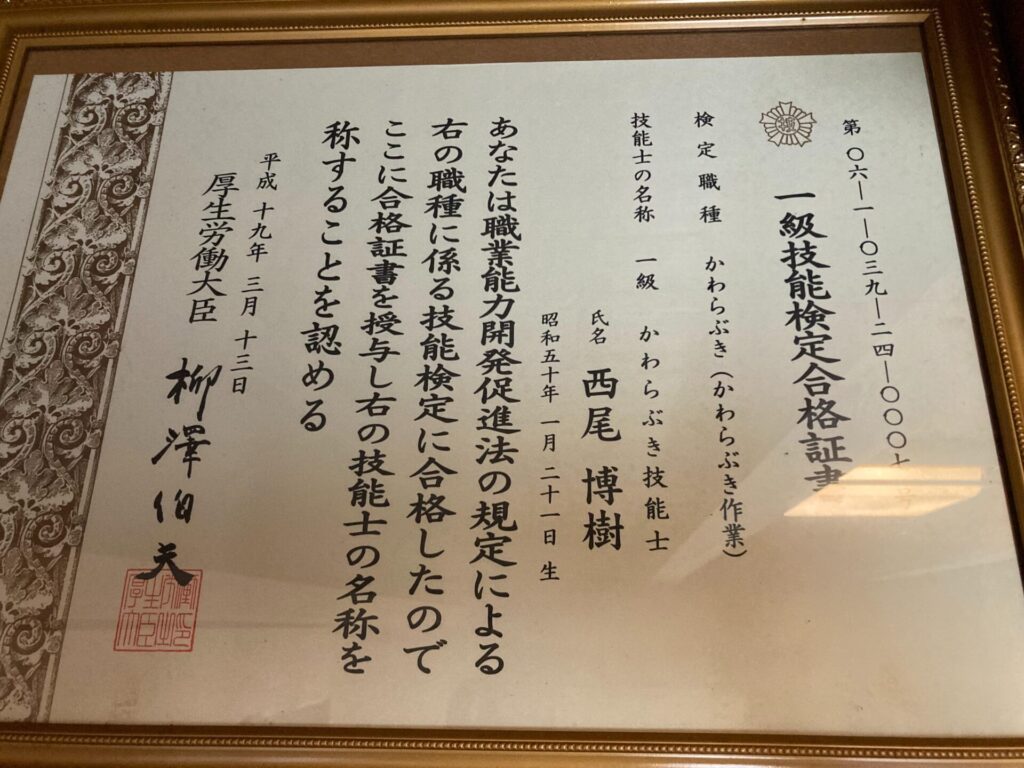 第〇六―一―〇三九―二四―〇〇〇
一級技能検定合格証書
検定職種 かわらぶき(かわらぶき作業)
技能士の名称 一級 かわらぶき技能士
氏名 西尾 博樹
昭和五十年 一月 二十一日 生
あなたは職業能力開発促進法の規定による
右の職種に係る技能検定に合格したので
ここに合格証書を授与し右の技能士の名称を
称することを認める
平成 十九年 三月 十三日
厚生労働大臣 柳澤伯夫